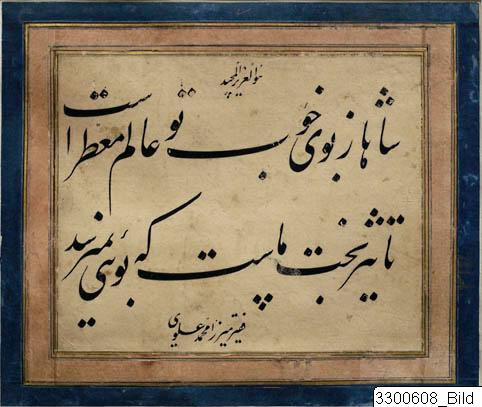 هو العزیز المجید
شاها ز بوی خوب تو عالم معطر است
تاثیر بخت ماست که بوئی نمیرسد
فقیر میرزا محمد علوی
3300608_Bild